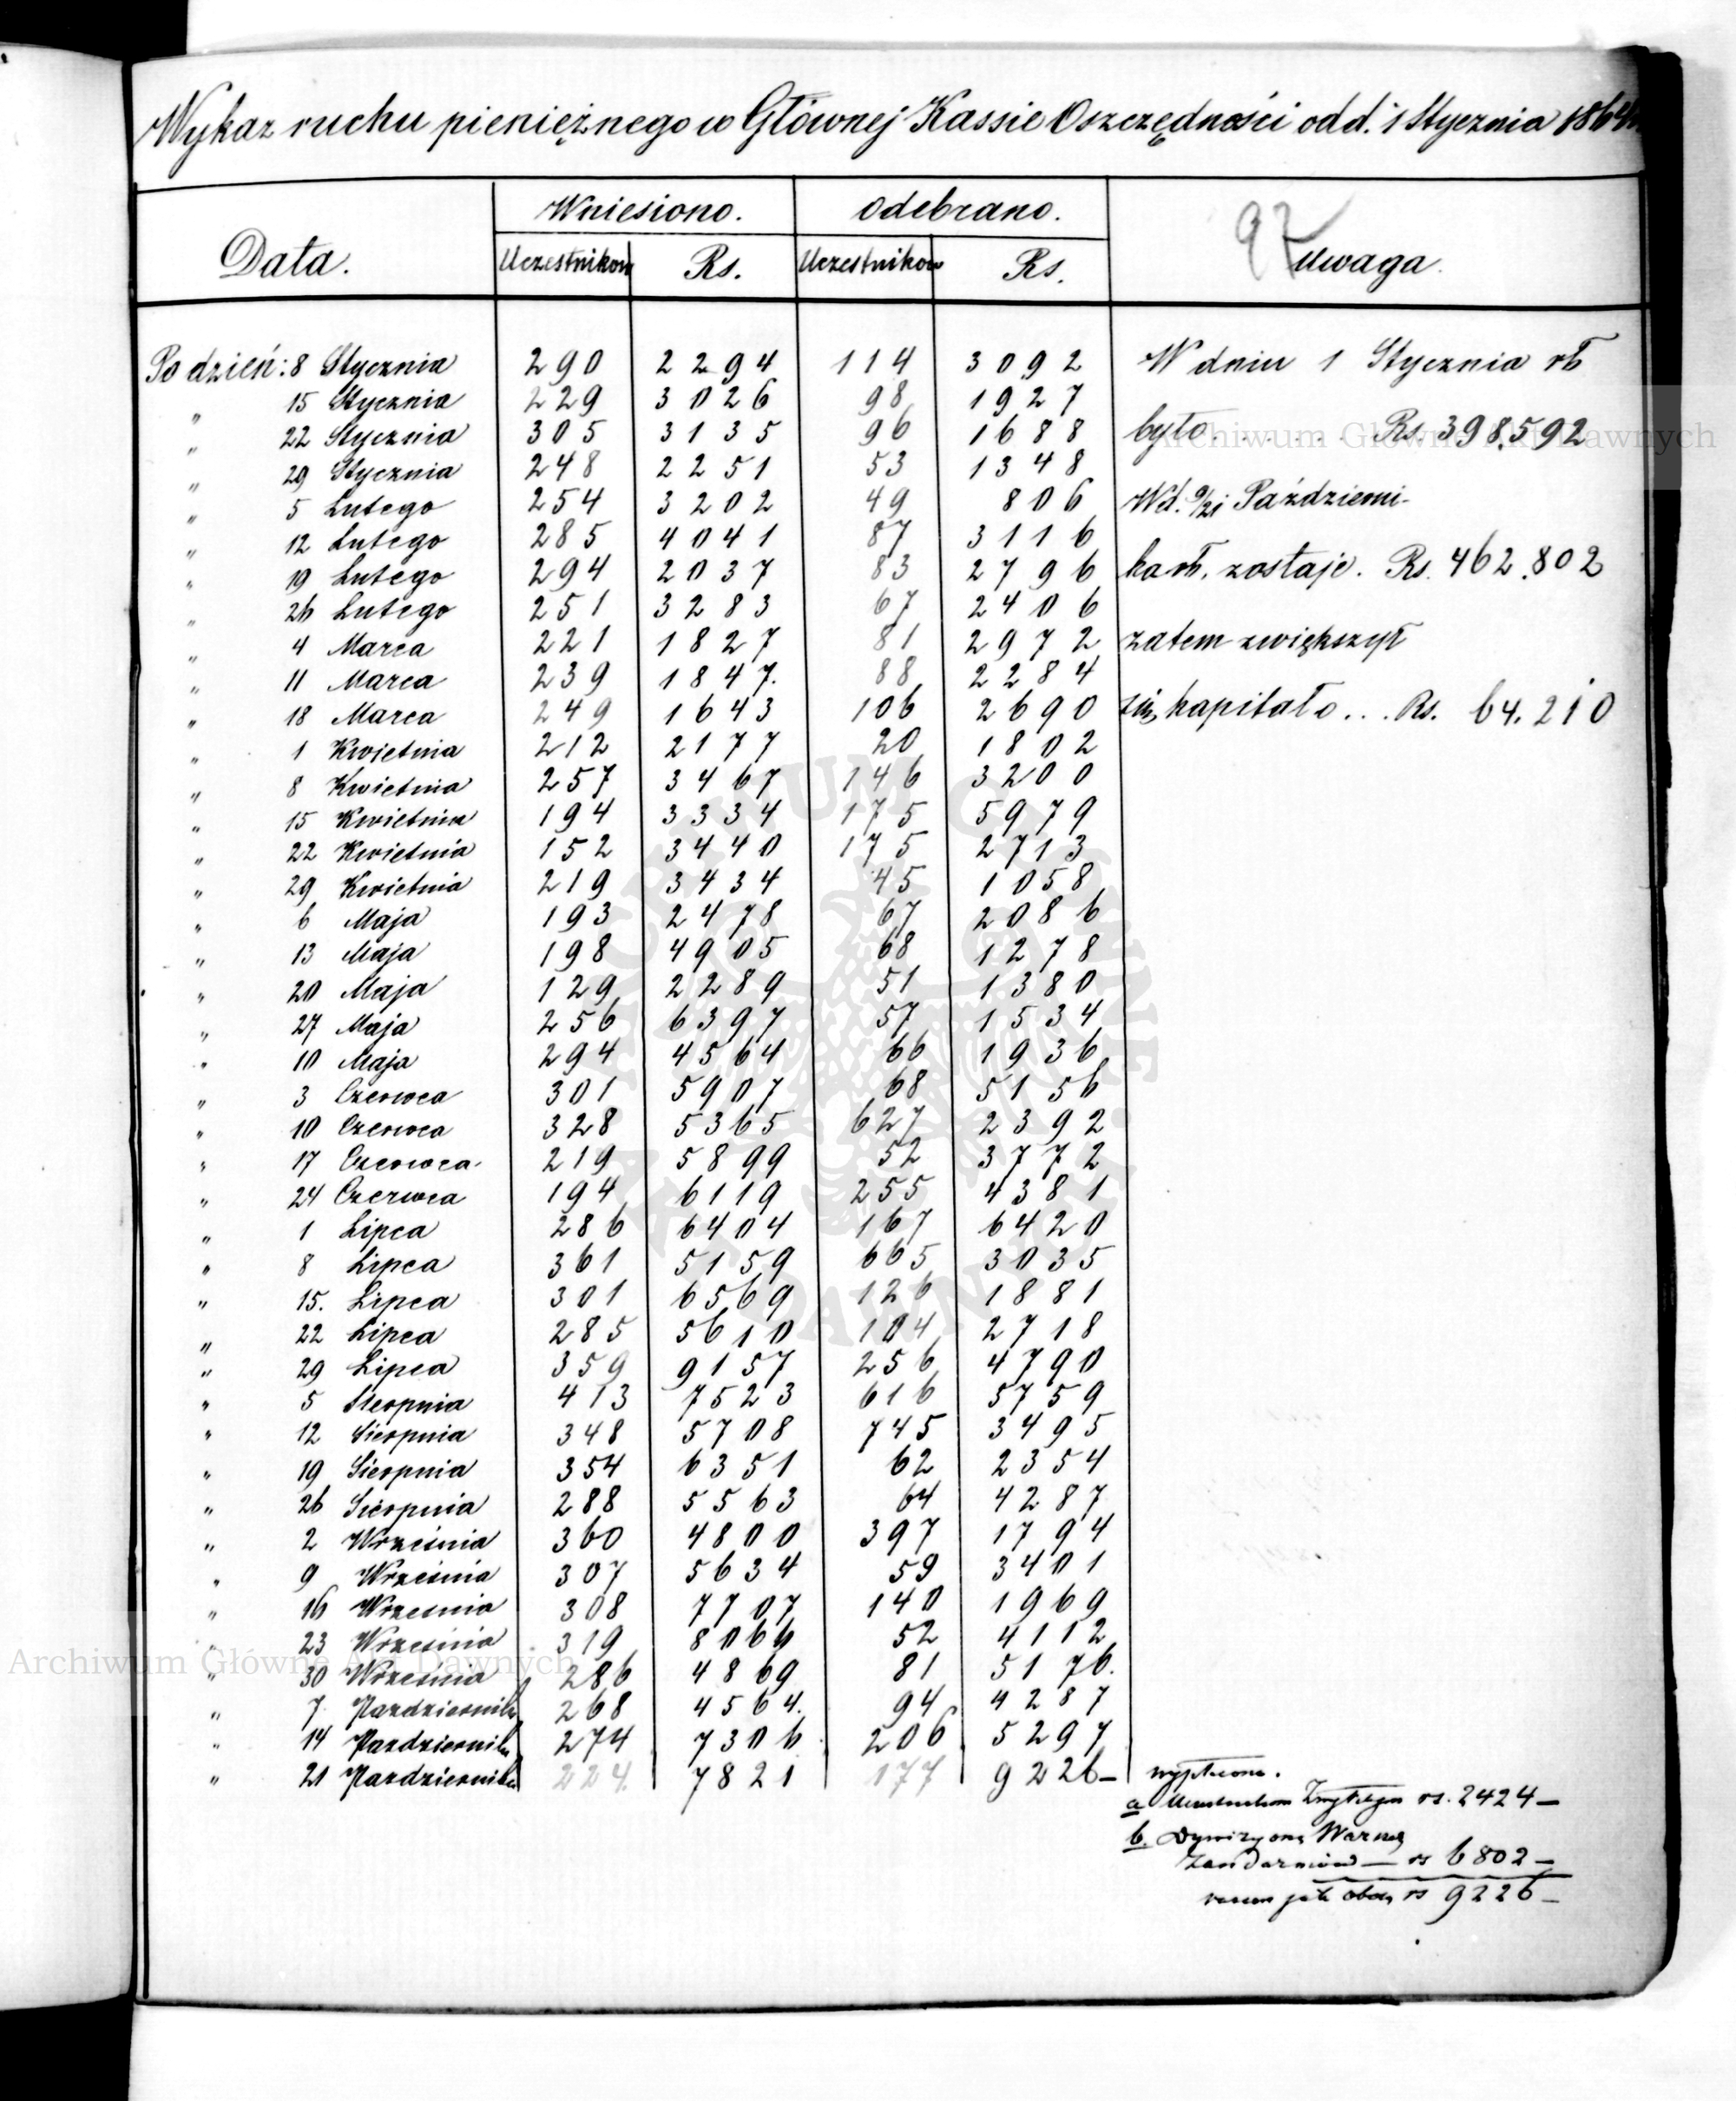 Wykaz ruchu pieniężnego w Głównej Kassie Oszczędności od d. 1 Stycznia 1864
Data. Wniesiono. Odebrano. Uwaga.
Uczestników Rs. Uczestników Rs.
97
Po dzień: 8 Stycznia 290 2294 114 3092 W dniu 1 Stycznia rb
" 15 Stycznia 229 3026 98 1927
" 22 Stycznia 305 3135 96 1688 było . . . . . . . Rs. 398.592
" 29 Stycznia 248 2251 53 1348
" 5 Lutego 254 3202 49 806 W d. 9/21 Październi-
" 12 Lutego 285 4041 87 3116
" 19 Lutego 294 2037 83 2796 ka rb. zostaje. Rs. 462.802
" 26 Lutego 251 3283 67 2406
" 4 Marca 221 1827 81 2972 zatem zwiększył
" 11 Marca 239 1847. 88 2284
" 18 Marca 249 1643 106 2690 się kapitał o . . . Rs. 64.210
" 1 Kwietnia 212 2177 20 1802
" 8 Kwietnia 257 3467 146 3200
" 15 Kwietnia 194 3334 175 5979
" 22 Kwietnia 152 3440 175 2713
" 29 Kwietnia 219 3434 45 1058
" 6 Maja 193 2478 67 2086
" 13 Maja 198 4905 68 1278
" 20 Maja 129 2289 51 1380
" 27 Maja 256 6397 57 1534
" 10 Maja 294 4564 66 1936
" 3 Czerwca 301 5907 68 5156
" 10 Czerwca 328 5365 627 2392
" 17 Czerwca 219 5899 52 3772
" 24 Czerwca 194 6119 255 4381
" 1 Lipca 286 6404 167 6420
" 8 Lipca 361 5159 665 3035
" 15. Lipca 301 6569 126 1881
" 22 Lipca 285 5610 104 2718
" 29 Lipca 359 9157 256 4790
" 5 Sierpnia 413 7523 616 5759
" 12 Sierpnia 348 5708 745 3495
" 19 Sierpnia 354 6351 62 2354
" 26 Sierpnia 288 5563 64 4287
" 2 Września 360 4800 397 1794
" 9 Września 307 5634 59 3401
" 16 Września 308 7707 140 1969
" 23 Września 319 8066 52 4112
" 30 Września 286 4869 81 5176.
" 7 Pazdziernika 268 4564. 94 4287
" 14 Pazdziernika 274 7306 206 5297
" 21 Pazdziernika 224. 7821 177 9226–
a rs. 2424–
b. Dywizyonę Warsz
Żandarmów — rs 6802–
razem jak obok rs 9226–
Archiwum Główne Akt Dawnych
Archiwum Główne Akt Dawnych
ARCHIWUM GŁÓWNE AKT DAWNYCH